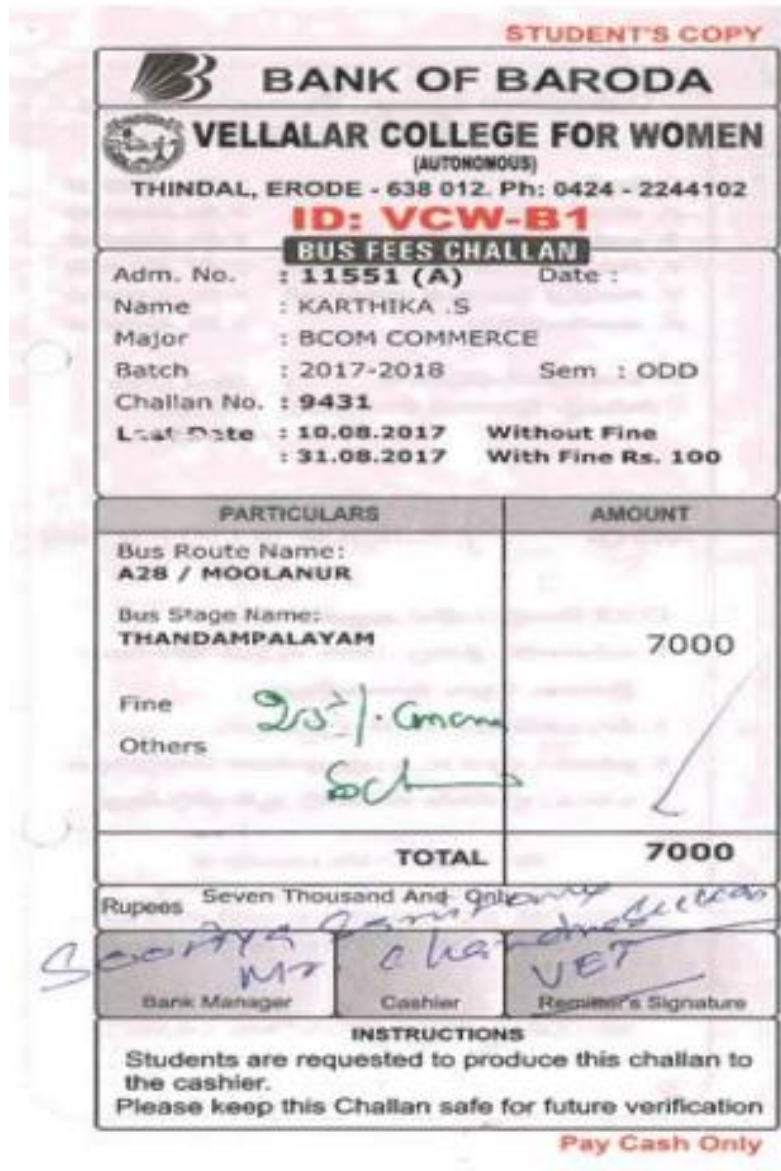 STUDENT'S COPY
BANK OF BARODA
VELLALAR COLLEGE FOR WOMEN
(AUTONOMOUS)
THINDAL, ERODE - 638 012. Ph: 0424 - 2244102
ID: VCW-B1
BUS FEES CHALLAN
Adm. No. : 11551 (A) Date :
Name : KARTHIKA .S
Major : BCOM COMMERCE
Batch : 2017-2018 Sem : ODD
Challan No. : 9431
Last Date : 10.08.2017 Without Fine
: 31.08.2017 With Fine Rs. 100
PARTICULARS AMOUNT
Bus Route Name:
A28 / MOOLANUR
Bus Stage Name:
THANDAMPALAYAM 7000
Fine
Others
TOTAL 7000
Rupees Seven Thousand And Only
Mr. VET
Bank Manager Cashier Remitter's Signature
INSTRUCTIONS
Students are requested to produce this challan to
the cashier.
Please keep this Challan safe for future verification
Pay Cash Only